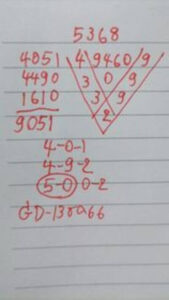 5368
4051 4 9460 9
4490 3 0 9
1610 3 9
9051 2
4-0-1
4-9-2
5-0 0-2